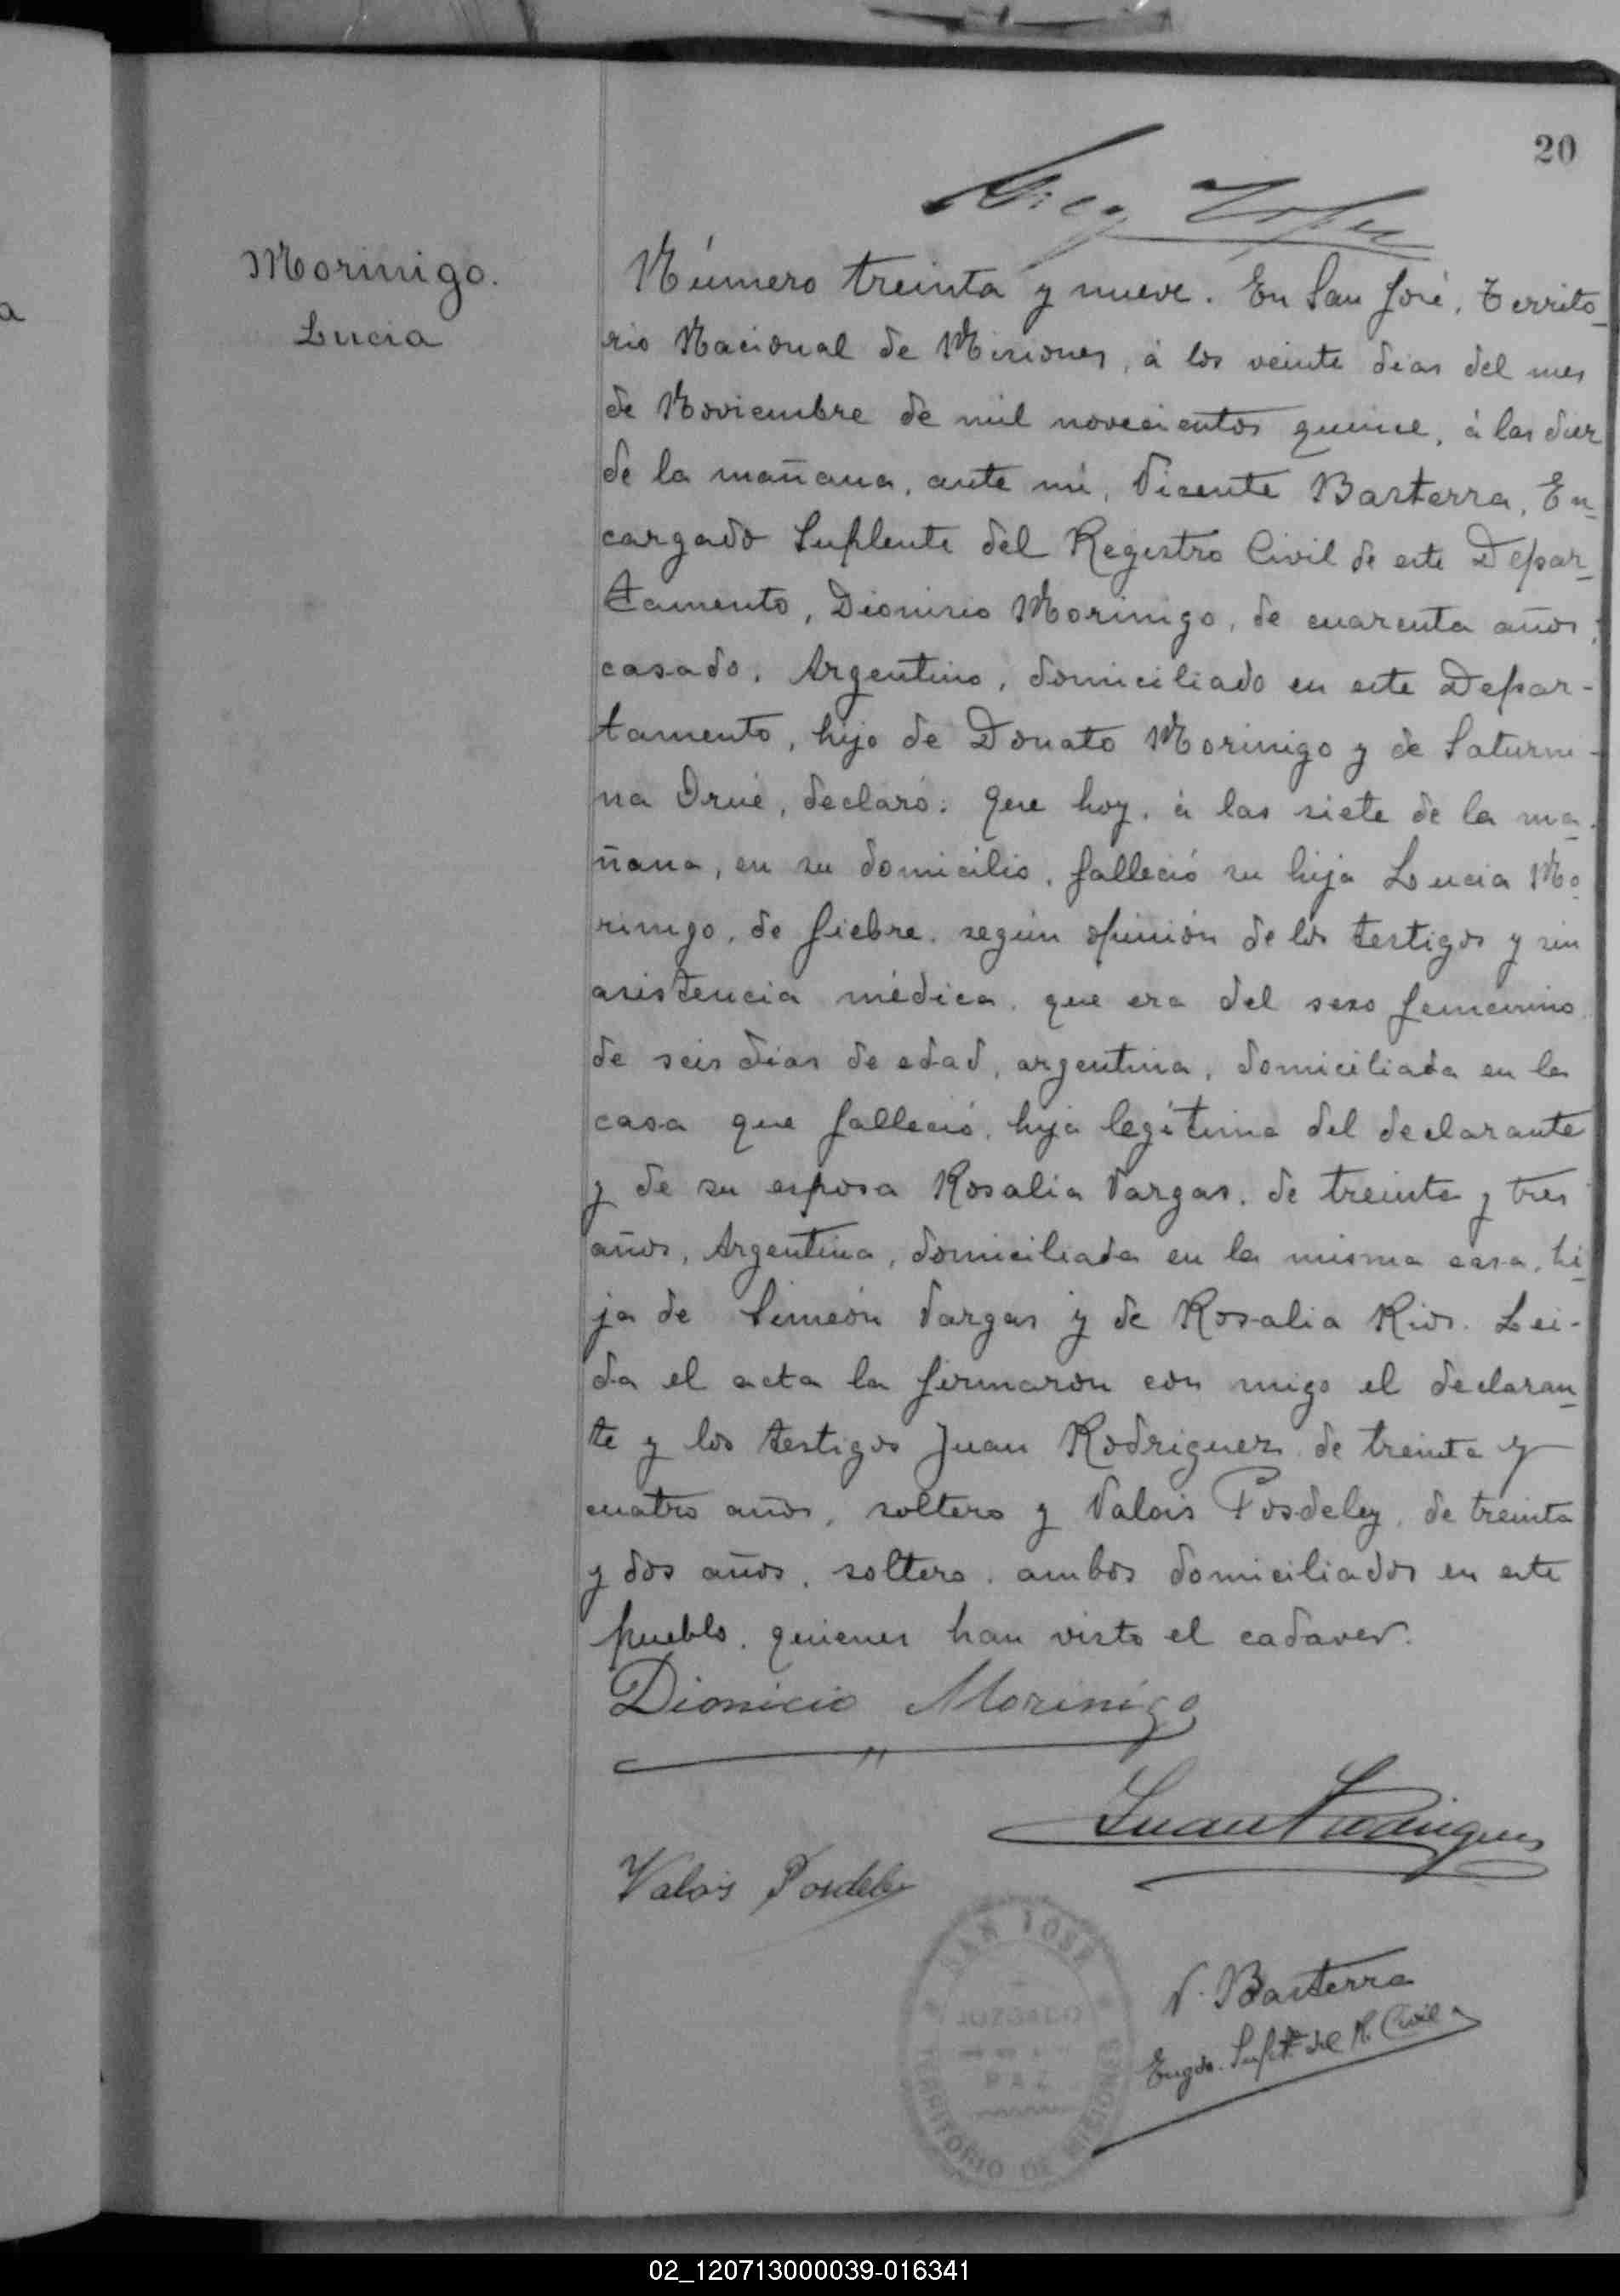 20
Morinigo.
Lucia
a
Número treinta y nueve. En San José, Territo_
rio Nacional de Misiones, á los veinte dias del mes
de Noviembre de mil novecientos quince, á las diez
de la mañana, ante mi, Vicente Basterra, En_
cargado Suplente del Registro Civil de este Depar_
tamento, Dionisio Morinigo, de cuarenta años,
casado, Argentino, domiciliado en este Depar-
tamento, hijo de Donato Morinigo y de Saturni-
na Orué, declaró: Que hoy, á las siete de la ma_
ñana, en su domicilio, falleció su hija Lucia Mo_
rinigo, de fiebre, según opinión de los testigos y sin
asistencia médica, que era del sexo femenino,
de seis dias de edad, argentina, domiciliada en la
casa que falleció, hija legítima del declarante
y de su esposa Rosalia Vargas, de treinta y tres
años, Argentina, domiciliada en la misma casa, hi_
ja de Simeón Vargas y de Rosalia Rios. Lei-
da el acta la firmaron con migo el declaran_
te y los testigos Juan Rodriguez de treinta y
cuatro años, soltero y Valois Posdeley, de treinta
y dos años, soltero, ambos domiciliados en este
pueblo, quienes han visto el cadaver.
Dionicio Morinigo
Juan Rodriguez
Valois Posdeley
SAN JOSE
JUZGADO
DE
PAZ
TERRITORIO DE MISIONES
V. Basterra
Engdo. Suplte. del R. Civil
02_120713000039-016341